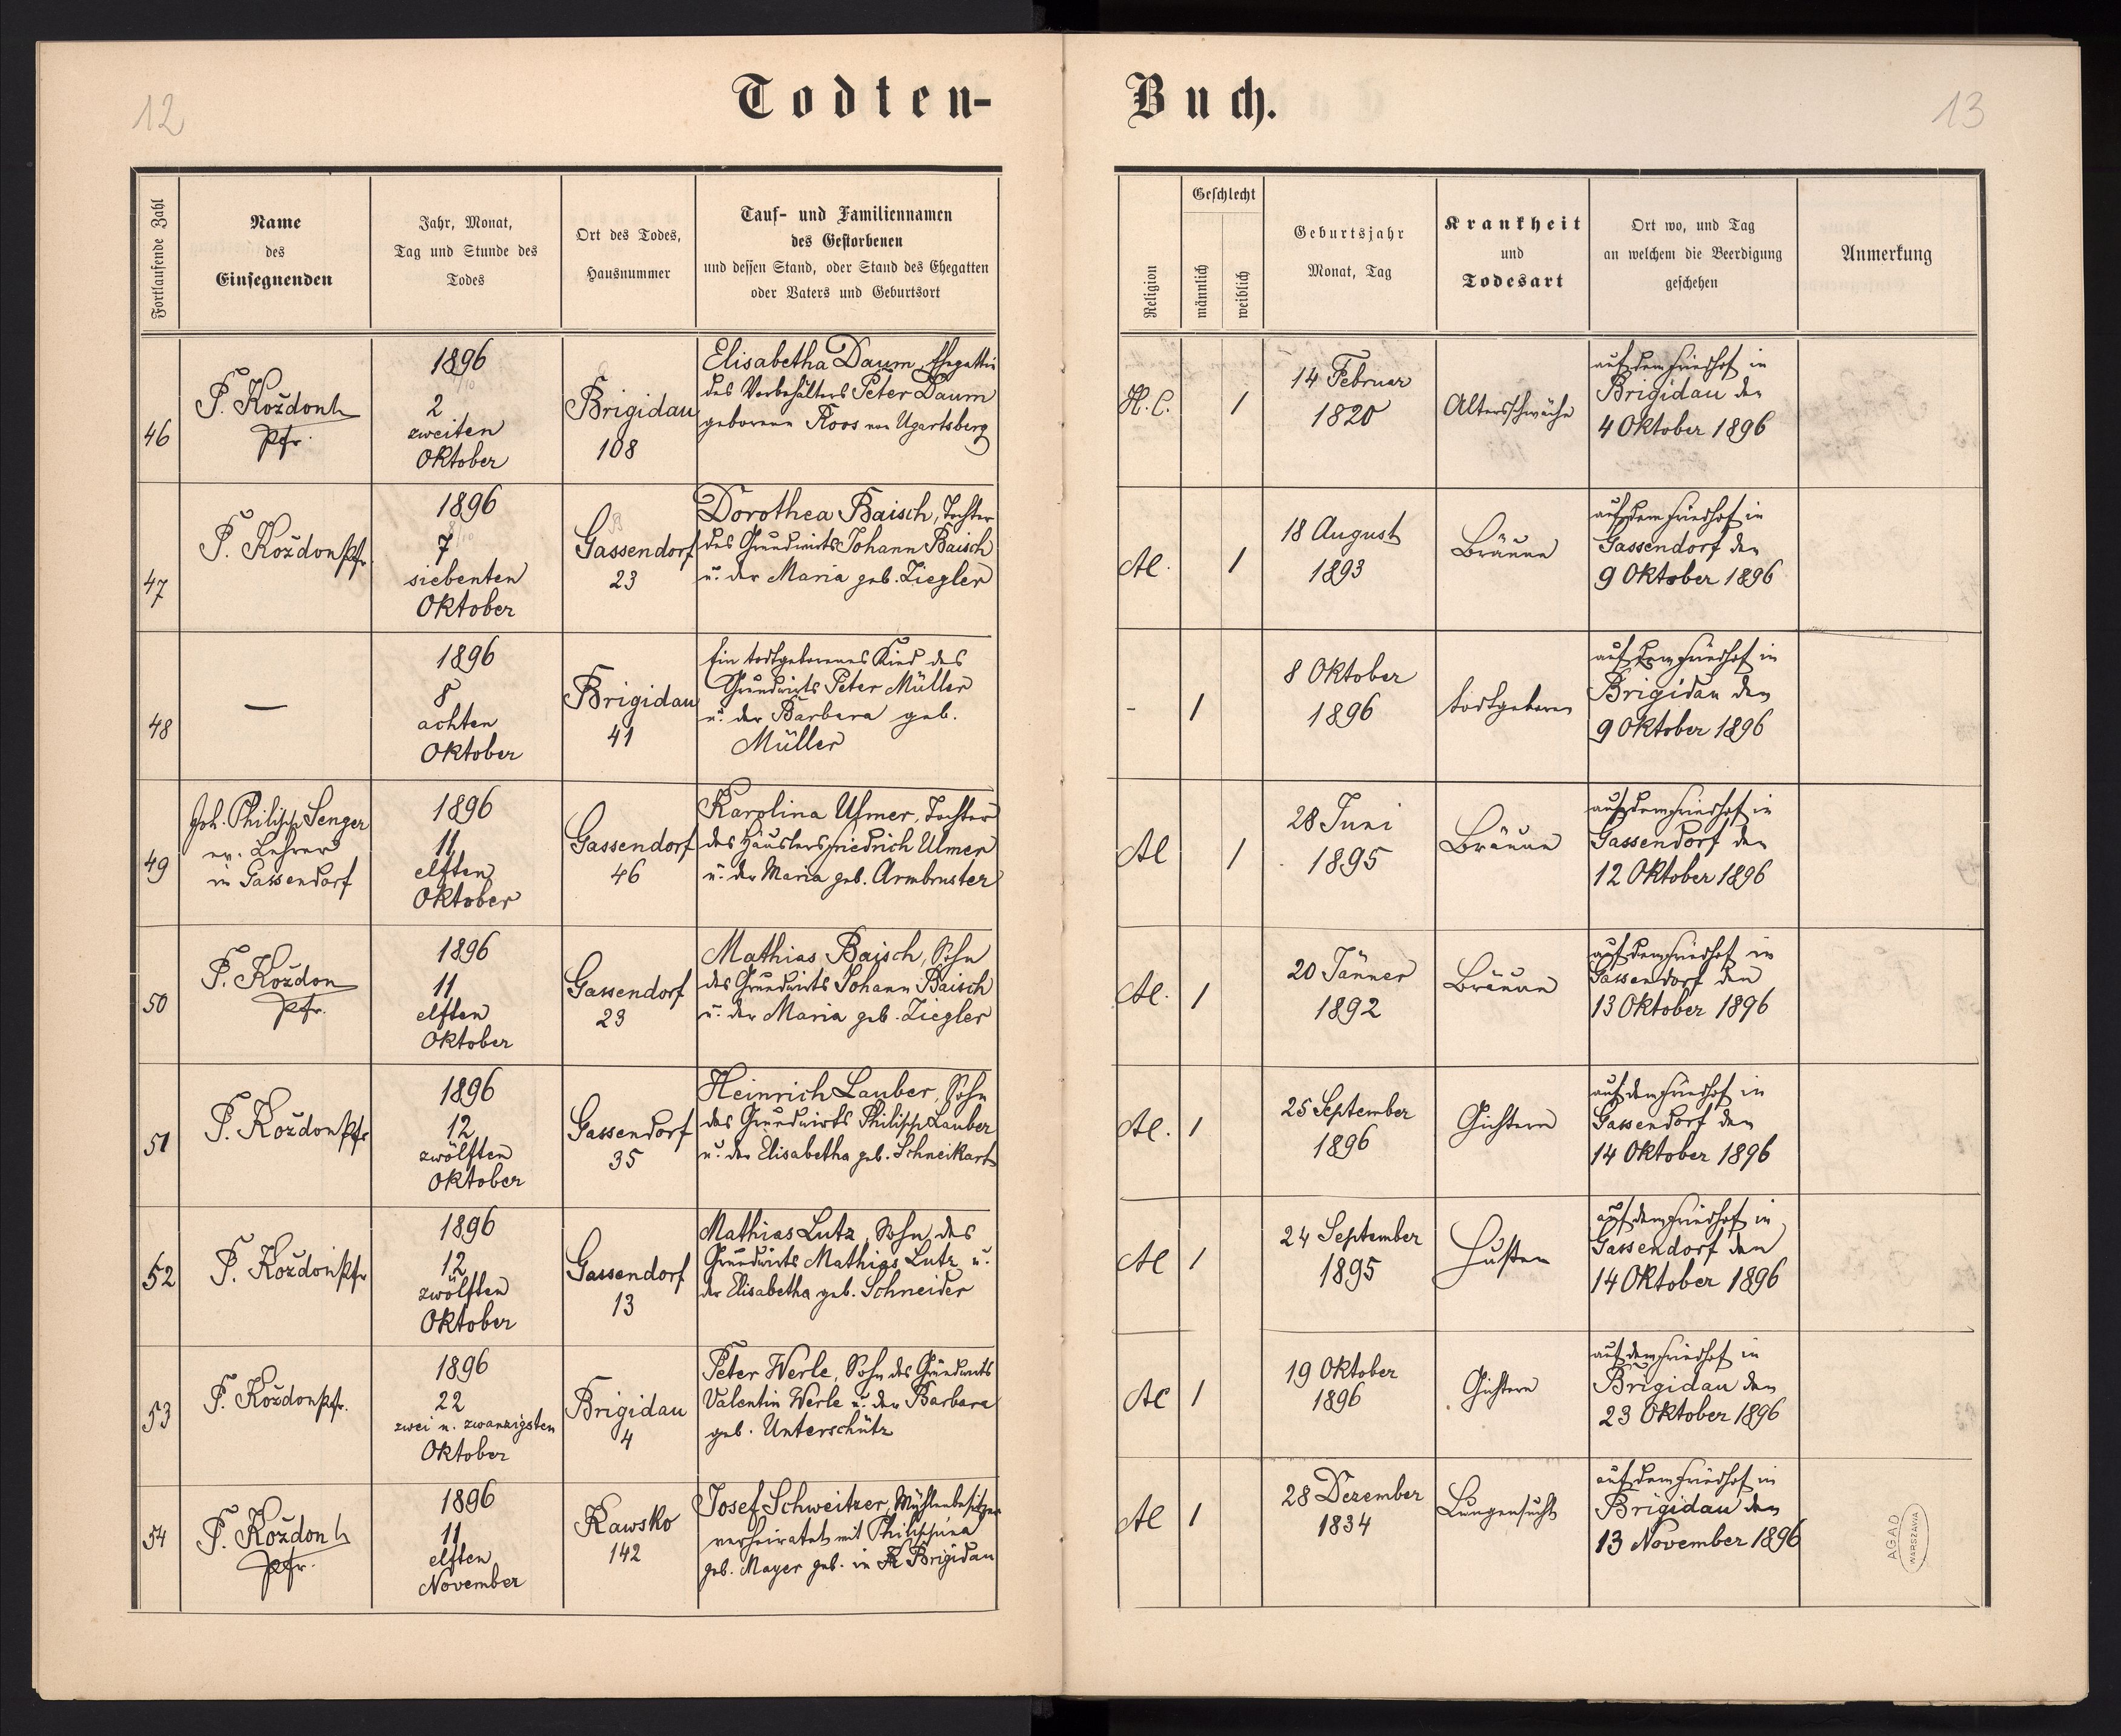 12
Todten-
Fortlaufende Zahl
Name
des
Einsegnenden
Jahr, Monat,
Tag und Stunde des
Todes
Ort des Todes,
Hausnummer
Tauf- und Familiennamen
des Gestorbenen
und dessen Stand, oder Stand des Ehegatten
oder Vaters und Geburtsort
46
P. Koždon
Pfr.
1896
2
zweiten
Oktober
Brigidau
108
Elisabetha Daum, Ehegattin
des Vorbehälters Peter Daum
geborene Roos von Ugartsberg
47
P. Koždon Pfr.
1896
7
siebenten
Oktober
Gassendorf
23
Dorothea Baisch, Tochter
des Grundwirts Johann Baisch
u. der Maria geb. Ziegler
48
—
1896
8
achten
Oktober
Brigidau
41
Ein todtgeborenes Kind des
Grundwirts Peter Müller
u. der Barbara geb.
Müller
49
Joh. Philipp Senger
ev. Lehrer
in Gassendorf
1896
11
elften
Oktober
Gassendorf
46
Karolina Ulmer, Tochter
des Häuslers Friedrich Ulmer
u. der Maria geb. Armbruster
50
P. Koždon
Pfr.
1896
11
elften
Oktober
Gassendorf
23
Mathias Baisch, Sohn
des Grundwirts Johann Baisch
u. der Maria geb. Ziegler
51
P. Koždon Pfr
1896
12
zwölften
Oktober
Gassendorf
35
Heinrich Lauber, Sohn
des Grundwirts Philipp Lauber
u. der Elisabetha geb. Schneikart
52
P. Koždon Pfr
1896
12
zwölften
Oktober
Gassendorf
13
Mathias Lutz, Sohn des
Grundwirts Mathias Lutz u.
der Elisabetha geb. Schneider
53
P. Koždon Pfr.
1896
22
zwei u. zwanzigsten
Oktober
Brigidau
4
Peter Werle, Sohn des Grundwirts
Valentin Werle u. der Barbara
geb. Unterschütz
54
P. Koždon
Pfr.
1896
11
elften
November
Kawsko
142
Josef Schweitzer, Mühlenbesitzer
verheiratet mit Philippina
geb. Mayer geb. in Brigidau
Buch.
13
Religion
Geschlecht
männlich
weiblich
Geburtsjahr
Monat, Tag
Krankheit
und
Todesart
Ort wo, und Tag
an welchem die Beerdigung
geschehen
Anmerkung
H.C.
1
14 Februar
1820
Altersschwäche
auf dem Friedhof in
Brigidau den
4 Oktober 1896
AC.
1
18 August
1893
Bräune
auf dem Friedhof in
Gassendorf den
9 Oktober 1896
-
1
8 Oktober
1896
todtgeboren
auf dem Friedhof in
Brigidau den
9 Oktober 1896
AC
1
28 Juni
1895
Bräune
auf dem Friedhof in
Gassendorf den
12 Oktober 1896
AC.
1
20 Jänner
1892
Bräune
auf dem Friedhof in
Gassendorf den
13 Oktober 1896
AC.
1
25 September
1896
Gichtern
auf dem Friedhof in
Gassendorf den
14 Oktober 1896
AC
1
24 September
1895
Husten
auf dem Friedhof in
Gassendorf den
14 Oktober 1896
AC
1
19 Oktober
1896
Gichtern
auf dem Friedhof in
Brigidau den
23 Oktober 1896
AC
1
28 Dezember
1834
Lungensucht
auf dem Friedhof in
Brigidau den
13 November 1896
AGAD
WARSZAWA